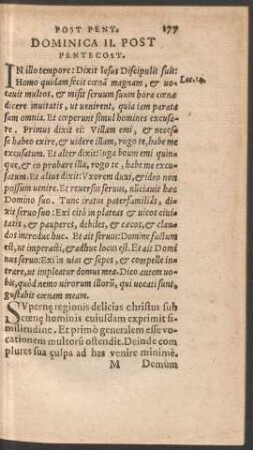 POST PENT. 177
DOMINICA II. POST
PENTECOST.
IN illo tempore: Dixit Iesus Discipulis suis:
Homo quidam fecit cœnã magnam, & uo- Luc. 14
cauit multos, & misit seruum suum hora cœnæ
dicere inuitatis, ut uenirent, quia iam parata
sum omnia. Et cœperunt simul homines excusa-
re. Primus dixit ei: Villam emi, & necesse
se habeo exire, & uidere illam, rogo te, habe me
excusatum. Et alter dixit: iuga boum emi quin-
que, & eo probare illa, rogo te, habe me excu-
satum. Et alius dixit: Vxorem duxi, & ideo non
possum uenire. Et reuersus seruus, nũciauit hæc
Domino suo. Tunc iratus paterfamiliâs, di-
xit seruo suo: Exi citò in plateas & uicos ciui-
tatis, & pauperes, debiles, & cæcos, & claudos
introduc huc. Et ait seruus: Domine factum
est, ut imperasti, & adhuc locus est. Et ait Domi-
nus seruo: Exi in uias & sepes, & compelle in-
trare, ut impleatur domus mea. Dico autem uo-
bis, quòd nemo uirorum illorũ, qui uocati sunt,
gustabit cœnam meam.
SVpernę regionis delicias christus sub
cœnę hominis cuiusdam exprimit si-
militudine. Et primò generalem esse vo-
cationem multorũ ostendit. Deinde com
plures sua culpa ad has venire minimè.
M Demùm